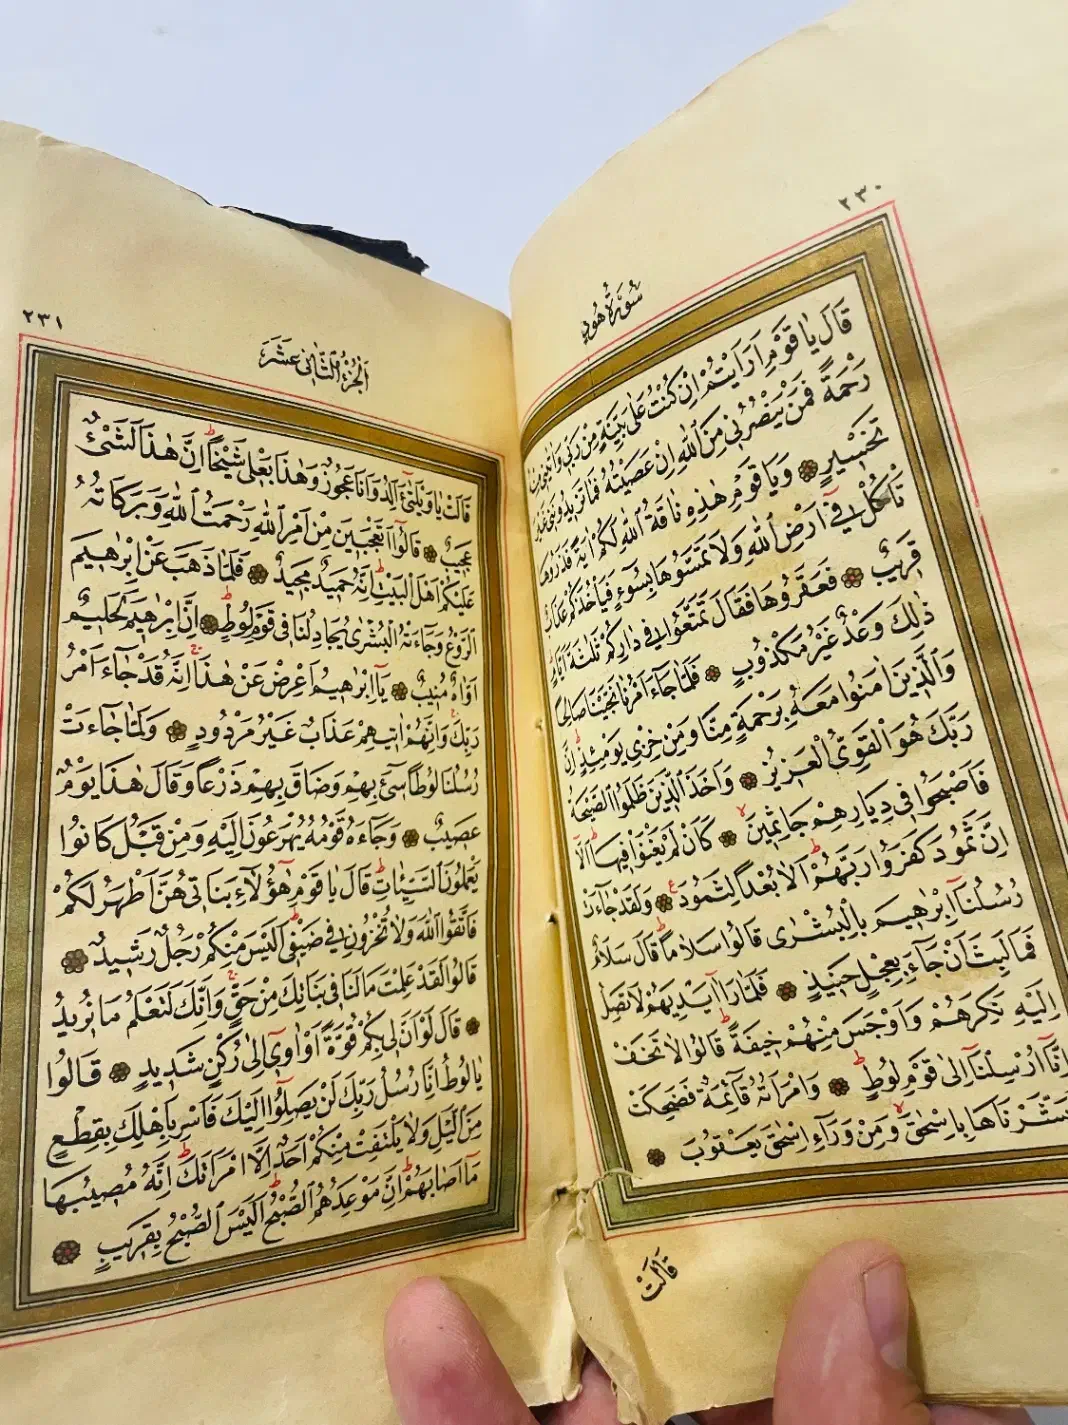 ٢٣٠
سُورَةُ هُودٍ
قَالَ يَا قَوْمِ اَرَاَيْتُمْ اِنْ كُنْتُ عَلٰى بَيِّنَةٍ مِنْ رَبّ۪ى وَاٰتٰين۪ى مِنْهُ
رَحْمَةً فَمَنْ يَنْصُرُن۪ى مِنَ اللّٰهِ اِنْ عَصَيْتُهُ فَمَا تَز۪يدُونَن۪ى غَيْرَ
تَخْس۪يرٍ ۞ وَيَا قَوْمِ هٰذِه۪ نَاقَةُ اللّٰهِ لَكُمْ اٰيَةً فَذَرُوهَا
تَاْكُلْ ف۪ٓى اَرْضِ اللّٰهِ وَلَا تَمَسُّوهَا بِسُٓوءٍ فَيَاْخُذَكُمْ عَذَابٌ
قَر۪يبٌ ۞ فَعَقَرُوهَا فَقَالَ تَمَتَّعُوا ف۪ى دَارِكُمْ ثَلٰثَةَ اَيَّامٍ
ذٰلِكَ وَعْدٌ غَيْرُ مَكْذُوبٍ ۞ فَلَمَّا جَٓاءَ اَمْرُنَا نَجَّيْنَا صَالِحًا
وَالَّذ۪ينَ اٰمَنُوا مَعَهُ بِرَحْمَةٍ مِنَّا وَمِنْ خِزْىِ يَوْمِئِذٍ اِنَّ
رَبَّكَ هُوَ الْقَوِىُّ الْعَز۪يزُ ۞ وَاَخَذَ الَّذ۪ينَ ظَلَمُوا الصَّيْحَةُ
فَاَصْبَحُوا ف۪ى دِيَارِهِمْ جَاثِم۪ينَ ۞ كَاَنْ لَمْ يَغْنَوْا ف۪يهَا اَلَٓا
اِنَّ ثَمُودَ كَفَرُوا رَبَّهُمْ اَلَا بُعْدًا لِثَمُودَ ۞ وَلَقَدْ جَٓاءَتْ
رُسُلُنَٓا اِبْرٰه۪يمَ بِالْبُشْرٰى قَالُوا سَلَامًا قَالَ سَلَامٌ
فَمَا لَبِثَ اَنْ جَٓاءَ بِعِجْلٍ حَن۪يذٍ ۞ فَلَمَّا رَآٰ اَيْدِيَهُمْ لَا تَصِلُ
اِلَيْهِ نَكِرَهُمْ وَاَوْجَسَ مِنْهُمْ خ۪يفَةً قَالُوا لَا تَخَفْ
اِنَّٓا اُرْسِلْنَٓا اِلٰى قَوْمِ لُوطٍ ۞ وَامْرَاَتُهُ قَٓائِمَةٌ فَضَحِكَتْ
فَبَشَّرْنَاهَا بِاِسْحٰقَ وَمِنْ وَرَٓاءِ اِسْحٰقَ يَعْقُوبَ ۞
قَالَتْ
٢٣١
اَلْجُزْءُ الثَّانِى عَشَرَ
قَالَتْ يَا وَيْلَتٰٓى ءَاَلِدُ وَاَنَا عَجُوزٌ وَهٰذَا بَعْل۪ى شَيْخًا اِنَّ هٰذَا لَشَىْءٌ
عَج۪يبٌ ۞ قَالُٓوا اَتَعْجَب۪ينَ مِنْ اَمْرِ اللّٰهِ رَحْمَتُ اللّٰهِ وَبَرَكَاتُهُ
عَلَيْكُمْ اَهْلَ الْبَيْتِ اِنَّهُ حَم۪يدٌ مَج۪يدٌ ۞ فَلَمَّا ذَهَبَ عَنْ اِبْرٰه۪يمَ
الرَّوْعُ وَجَٓاءَتْهُ الْبُشْرٰى يُجَادِلُنَا ف۪ى قَوْمِ لُوطٍ ۞ اِنَّ اِبْرٰه۪يمَ لَحَل۪يمٌ
اَوَّاهٌ مُن۪يبٌ ۞ يَٓا اِبْرٰه۪يمُ اَعْرِضْ عَنْ هٰذَا اِنَّهُ قَدْ جَٓاءَ اَمْرُ
رَبِّكَ وَاِنَّهُمْ اٰت۪يهِمْ عَذَابٌ غَيْرُ مَرْدُودٍ ۞ وَلَمَّا جَٓاءَتْ
رُسُلُنَا لُوطًا س۪ٓىءَ بِهِمْ وَضَاقَ بِهِمْ ذَرْعًا وَقَالَ هٰذَا يَوْمٌ
عَص۪يبٌ ۞ وَجَٓاءَهُ قَوْمُهُ يُهْرَعُونَ اِلَيْهِ وَمِنْ قَبْلُ كَانُوا
يَعْمَلُونَ السَّيِّـَٔاتِ قَالَ يَا قَوْمِ هٰٓؤُ۬لَٓاءِ بَنَات۪ى هُنَّ اَطْهَرُ لَكُمْ
فَاتَّقُوا اللّٰهَ وَلَا تُخْزُونِ ف۪ى ضَيْف۪ى اَلَيْسَ مِنْكُمْ رَجُلٌ رَش۪يدٌ ۞
قَالُوا لَقَدْ عَلِمْتَ مَا لَنَا ف۪ى بَنَاتِكَ مِنْ حَقٍّ وَاِنَّكَ لَتَعْلَمُ مَا نُر۪يدُ
۞ قَالَ لَوْ اَنَّ ل۪ى بِكُمْ قُوَّةً اَوْ اٰو۪ٓى اِلٰى رُكْنٍ شَد۪يدٍ ۞ قَالُوا
يَا لُوطُ اِنَّا رُسُلُ رَبِّكَ لَنْ يَصِلُٓوا اِلَيْكَ فَاَسْرِ بِاَهْلِكَ بِقِطْعٍ
مِنَ الَّيْلِ وَلَا يَلْتَفِتْ مِنْكُمْ اَحَدٌ اِلَّا امْرَاَتَكَ اِنَّهُ مُص۪يبُهَا
مَٓا اَصَابَهُمْ اِنَّ مَوْعِدَهُمُ الصُّبْحُ اَلَيْسَ الصُّبْحُ بِقَر۪يبٍ ۞